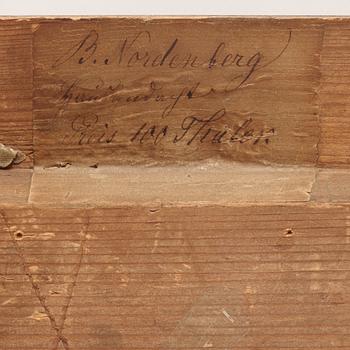 B. Nordenberg
Hausandacht
Preis 100 Thaler